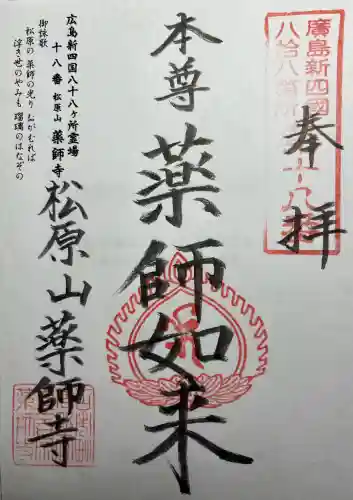 奉拝
廣島新四國
八拾八箇所
本尊 薬師如来
広島新四国八十八ヶ所霊場
十八番 松原山 薬師寺
御詠歌
松原の 薬師の光り
浮き世のやみも 瑠璃のはなぞの
松原山薬師寺